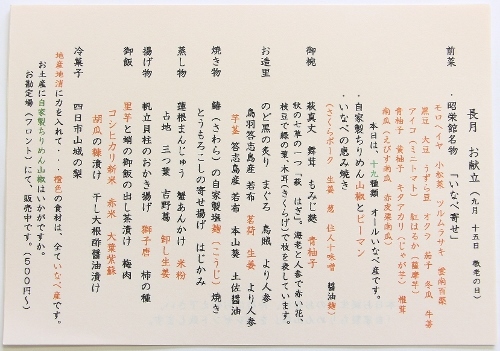 長月　お献立（九月　十五日　敬老の日）
前菜　・昭栄館名物　「いなべ寄せ」
モロヘイヤ　小松菜　ツルムラサキ　雲南百薬
黒豆　大豆　うずら豆　オクラ　茄子　冬瓜　牛蒡
アイコ（ミニトマト）　紅はるか（薩摩芋）
青柚子　黄柚子　キタアカリ（じゃが芋）　椎茸
南瓜（えびす南瓜、赤皮栗南瓜）
本日は、十九種類　オールいなべ産です。
・自家製ちりめん山椒とピーマン
・いなべの恵み焼き
（さくらポーク　生姜　葱　住人十味噌　醤油麹）
御椀　萩真丈　舞茸　もみじ麩　青柚子
秋の七草の一つ「萩　はぎ」。海老と人参で赤い花、
枝豆で緑の葉、木耳（きくらげ）で枝を表しています。
お造里　のど黒の炙り　まぐろ　烏賊　より人参
鳥羽答志島産　若布　茗荷　生姜　より人参
芋茎　答志島産　若布　本山葵　土佐醤油
焼き物　鰆（さわら）の自家製塩麹（こうじ）焼き
とうもろこしの寄せ揚げ　はじかみ
蒸し物　蓮根まんじゅう　蟹あんかけ　米粉
占地　三つ葉　吉野葛　卸し生姜
揚げ物　帆立貝柱のおかき揚げ　獅子唐　柿の種
御飯　里芋と蛸の御飯の出し茶漬け　梅肉
コシヒカリ新米　赤米　大葉紫蘇
胡瓜の糠漬け　干し大根酢醤油漬け
冷菓子　四日市山城の梨
地産地消に力を入れて・・・橙色の食材は、全ていなべ産です。
お土産に自家製ちりめん山椒はいかがですか。
お勘定場（フロント）にて、販売中です。（５００円〜）